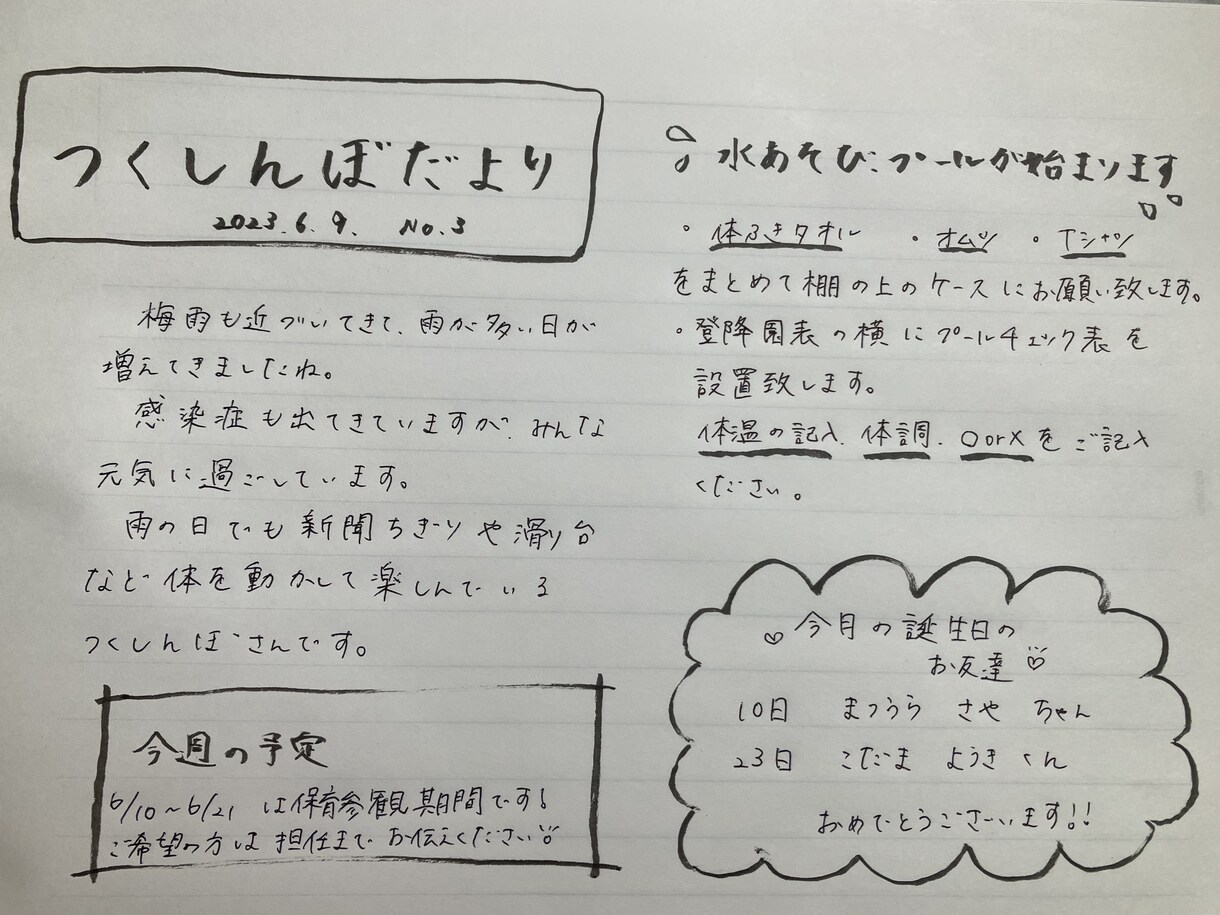 つくしんぼだより
2023.6.9. No.3
梅雨も近づいてきて、雨が多い日が
増えてきましたね。
感染症も出てきていますが、みんな
元気に過ごしています。
雨の日でも新聞ちぎりや滑り台
など体を動かして楽しんでいる
つくしんぼさんです。
今週の予定
6/10~6/21 は保育参観期間です!
ご希望の方は担任までお伝えください
水あそび、プールが始まります
・体ふきタオル ・オムツ ・Tシャツ
をまとめて棚の上のケースにお願い致します。
・登降園表の横にプールチェック表を
設置致します。
体温の記入、体調、○or×をご記入
ください。
♡今月の誕生日の
お友達♡
10日 まつうら さや ちゃん
23日 こだま ようき くん
おめでとうございます!!